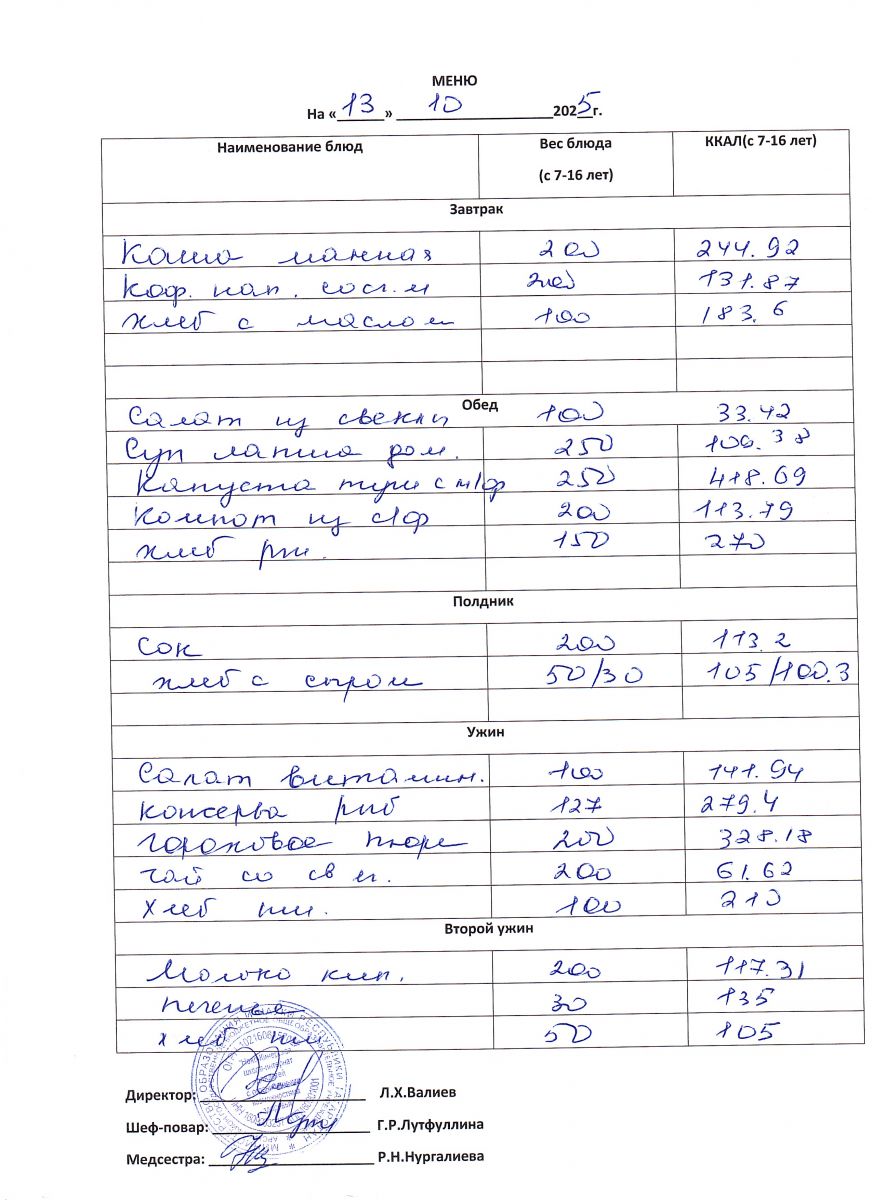 МЕНЮ
На «13» 10 2025г.
Наименование блюд Вес блюда (с 7-16 лет) ККАЛ(с 7-16 лет)
Завтрак
Каша манная 200 244.92
Коф. нап. сосг.м 200 131.87
Хлеб с маслом 100 183.6
Обед
Салат из свеклы 100 33.42
Суп лапша дом. 250 106.38
Капуста туш с м/ф 250 418.69
Компот из с/ф 200 113.79
Хлеб рж. 150 270
Полдник
Сок 200 113.2
Хлеб с сыром 50/30 105/100.3
Ужин
Салат витамин. 100 141.94
Консерва рыб 127 279.4
Гороховое пюре 200 328.18
Чай со св м. 200 61.62
Хлеб пш. 100 210
Второй ужин
Молоко кип. 200 117.31
Печенье 30 135
Хлеб пш 50 105
Директор: Л.Х.Валиев
Шеф-повар: Г.Р.Лутфуллина
Медсестра: Р.Н.Нургалиева